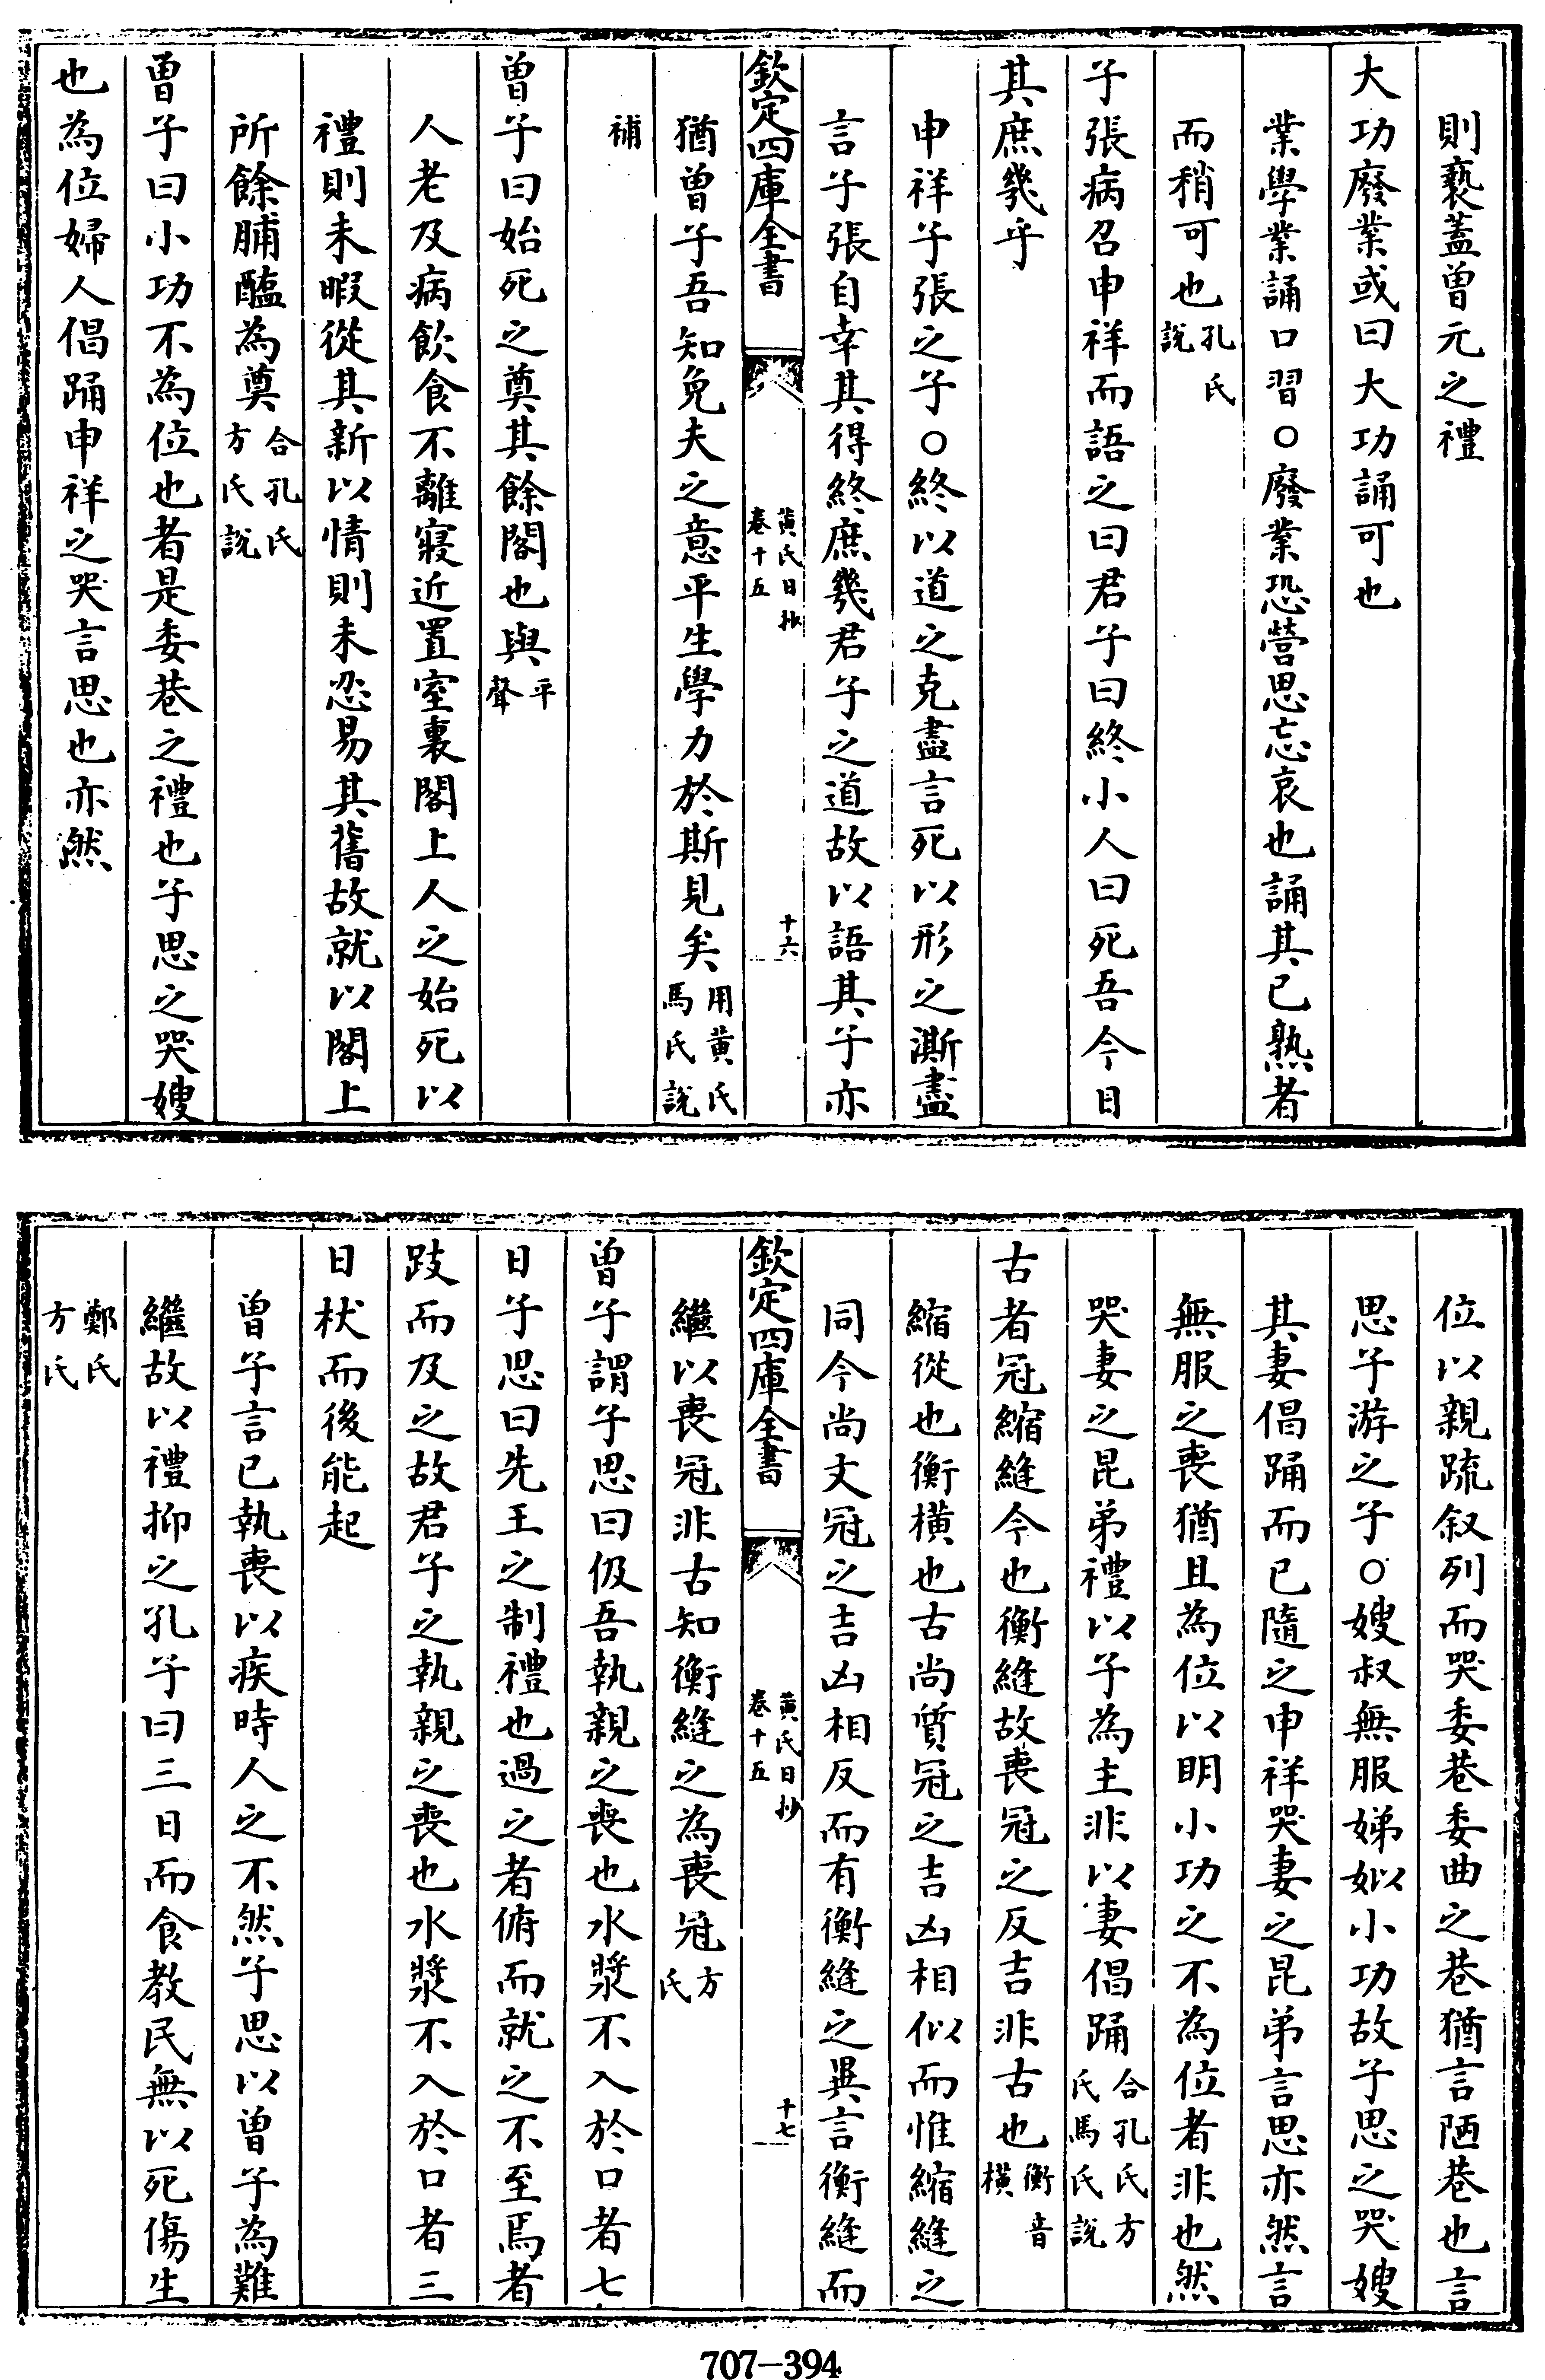 則褻蓋曾元之禮
大功廢業或曰大功誦可也
業學業誦口習○廢業恐營思忘哀也誦其已熟者
而稍可也孔氏說
子張病召申祥而語之曰君子曰終小人曰死吾今日
其庶幾乎
申祥子張之子○終以道之克盡言死以形之澌盡
言子張自幸其得終庶幾君子之道故以語其子亦
欽定四庫全書 黃氏日抄 卷十五 十六
猶曾子吾知免夫之意平生學力於斯見矣用黃氏馬氏說
補
曾子曰始死之奠其餘閣也與平聲
人老及病飲食不離寢近置室裏閣上人之始死以
禮則未暇從其新以情則未忍易其舊故就以閣上
所餘脯醢為奠合孔氏方氏說
曾子曰小功不為位也者是委巷之禮也子思之哭嫂
也為位婦人倡踊申祥之哭言思也亦然
位以親疏叙列而哭委巷委曲之巷猶言陋巷也言
思子游之子○嫂叔無服娣姒小功故子思之哭嫂
其妻倡踊而已隨之申祥哭妻之昆弟言思亦然言
無服之喪猶且為位以明小功之不為位者非也然
哭妻之昆弟禮以子為主非以妻倡踊合孔氏方氏馬氏說
古者冠縮縫今也衡縫故喪冠之反吉非古也衡音橫
縮從也衡橫也古尚質冠之吉凶相似而惟縮縫之
同今尚文冠之吉凶相反而有衡縫之異言衡縫而
欽定四庫全書 黃氏日抄 卷十五 十七
繼以喪冠非古知衡縫之為喪冠方氏
曾子謂子思曰伋吾執親之喪也水漿不入於口者七
日子思曰先王之制禮也過之者俯而就之不至焉者
跂而及之故君子之執親之喪也水漿不入於口者三
日杖而後能起
曾子言已執喪以疾時人之不然子思以曾子為難
繼故以禮抑之孔子曰三日而食教民無以死傷生
鄭氏方氏
707-394